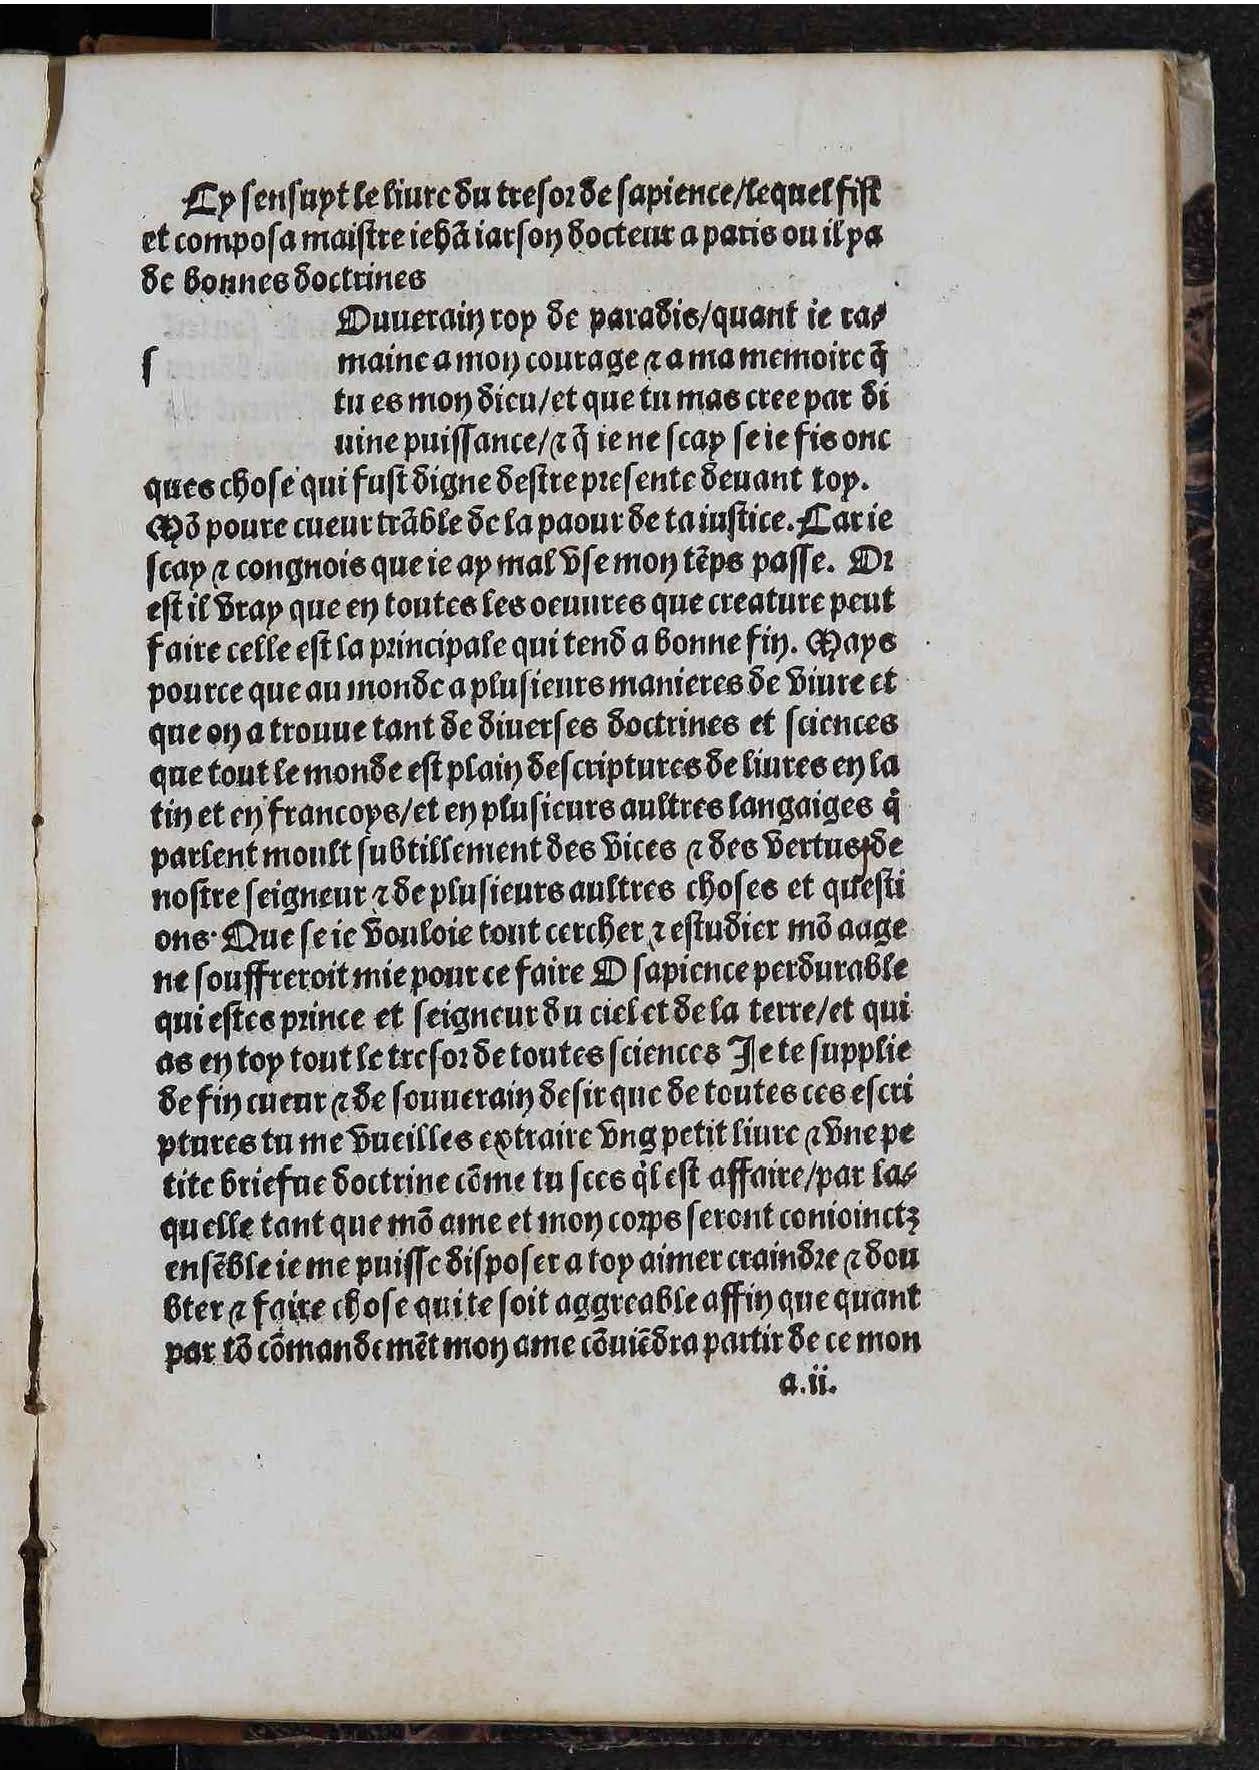 Cy sensuyt le liure du tresor de sapience/lequel fist
et composa maistre iehā iarson docteur a paris ou il ya
de bonnes doctrines
s
Ouuerain roy de paradis/quant ie ra-
maine a mon courage ⁊ a ma memoire q̄
tu es mon dieu/et que tu mas cree par di
uine puissance/⁊ q̄ ie ne scay se ie fis onc
ques chose qui fust digne destre presente deuant toy.
Mō poure cueur trāble de la paour de ta iustice. Car ie
scay ⁊ congnois que ie ay mal vse mon tēps passe. Or
est il vray que en toutes les oeuures que creature peut
faire celle est la principale qui tend a bonne fin. Mays
pource que au monde a plusieurs manieres de viure et
que on a trouue tant de diuerses doctrines et sciences
que tout le monde est plain descriptures de liures en la
tin et en francoys/et en plusieurs aultres langaiges q̇
parlent moult subtillement des vices ⁊ des vertus/de
nostre seigneur ⁊ de plusieurs aultres choses et questi
ons· Que se ie vouloie tout cercher ⁊ estudier mō aage
ne souffreroit mie pour ce faire O sapience perdurable
qui estes prince et seigneur du ciel et de la terre/et qui
as en toy tout le tresor de toutes sciences Je te supplie
de fin cueur ⁊ de souuerain desir que de toutes ces escri
ptures tu me vueilles extraire vng petit liure ⁊ vne pe
tite briefue doctrine cōme tu sces q̇l est affaire/par la-
quelle tant que mō ame et mon corps seront conioinctꝫ
ensēble ie me puisse disposer a toy aimer craindre ⁊ dou
bter ⁊ faire chose qui te soit aggreable affin que quant
par tō cōmandemēt mon ame cōuiēdra partir de ce mon
a.ii.